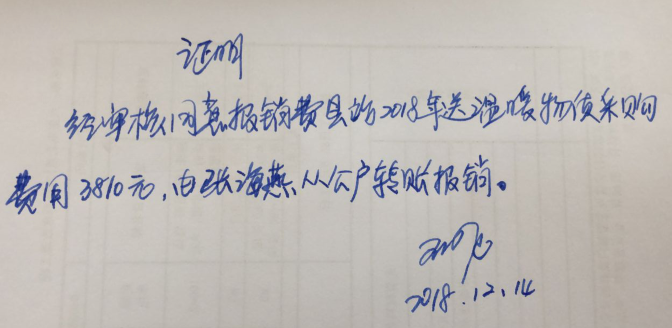 证明
经审核,同意报销费县站2018年送温暖物资采购
费用3810元,由张海燕从公户转账报销。
2018.12.14